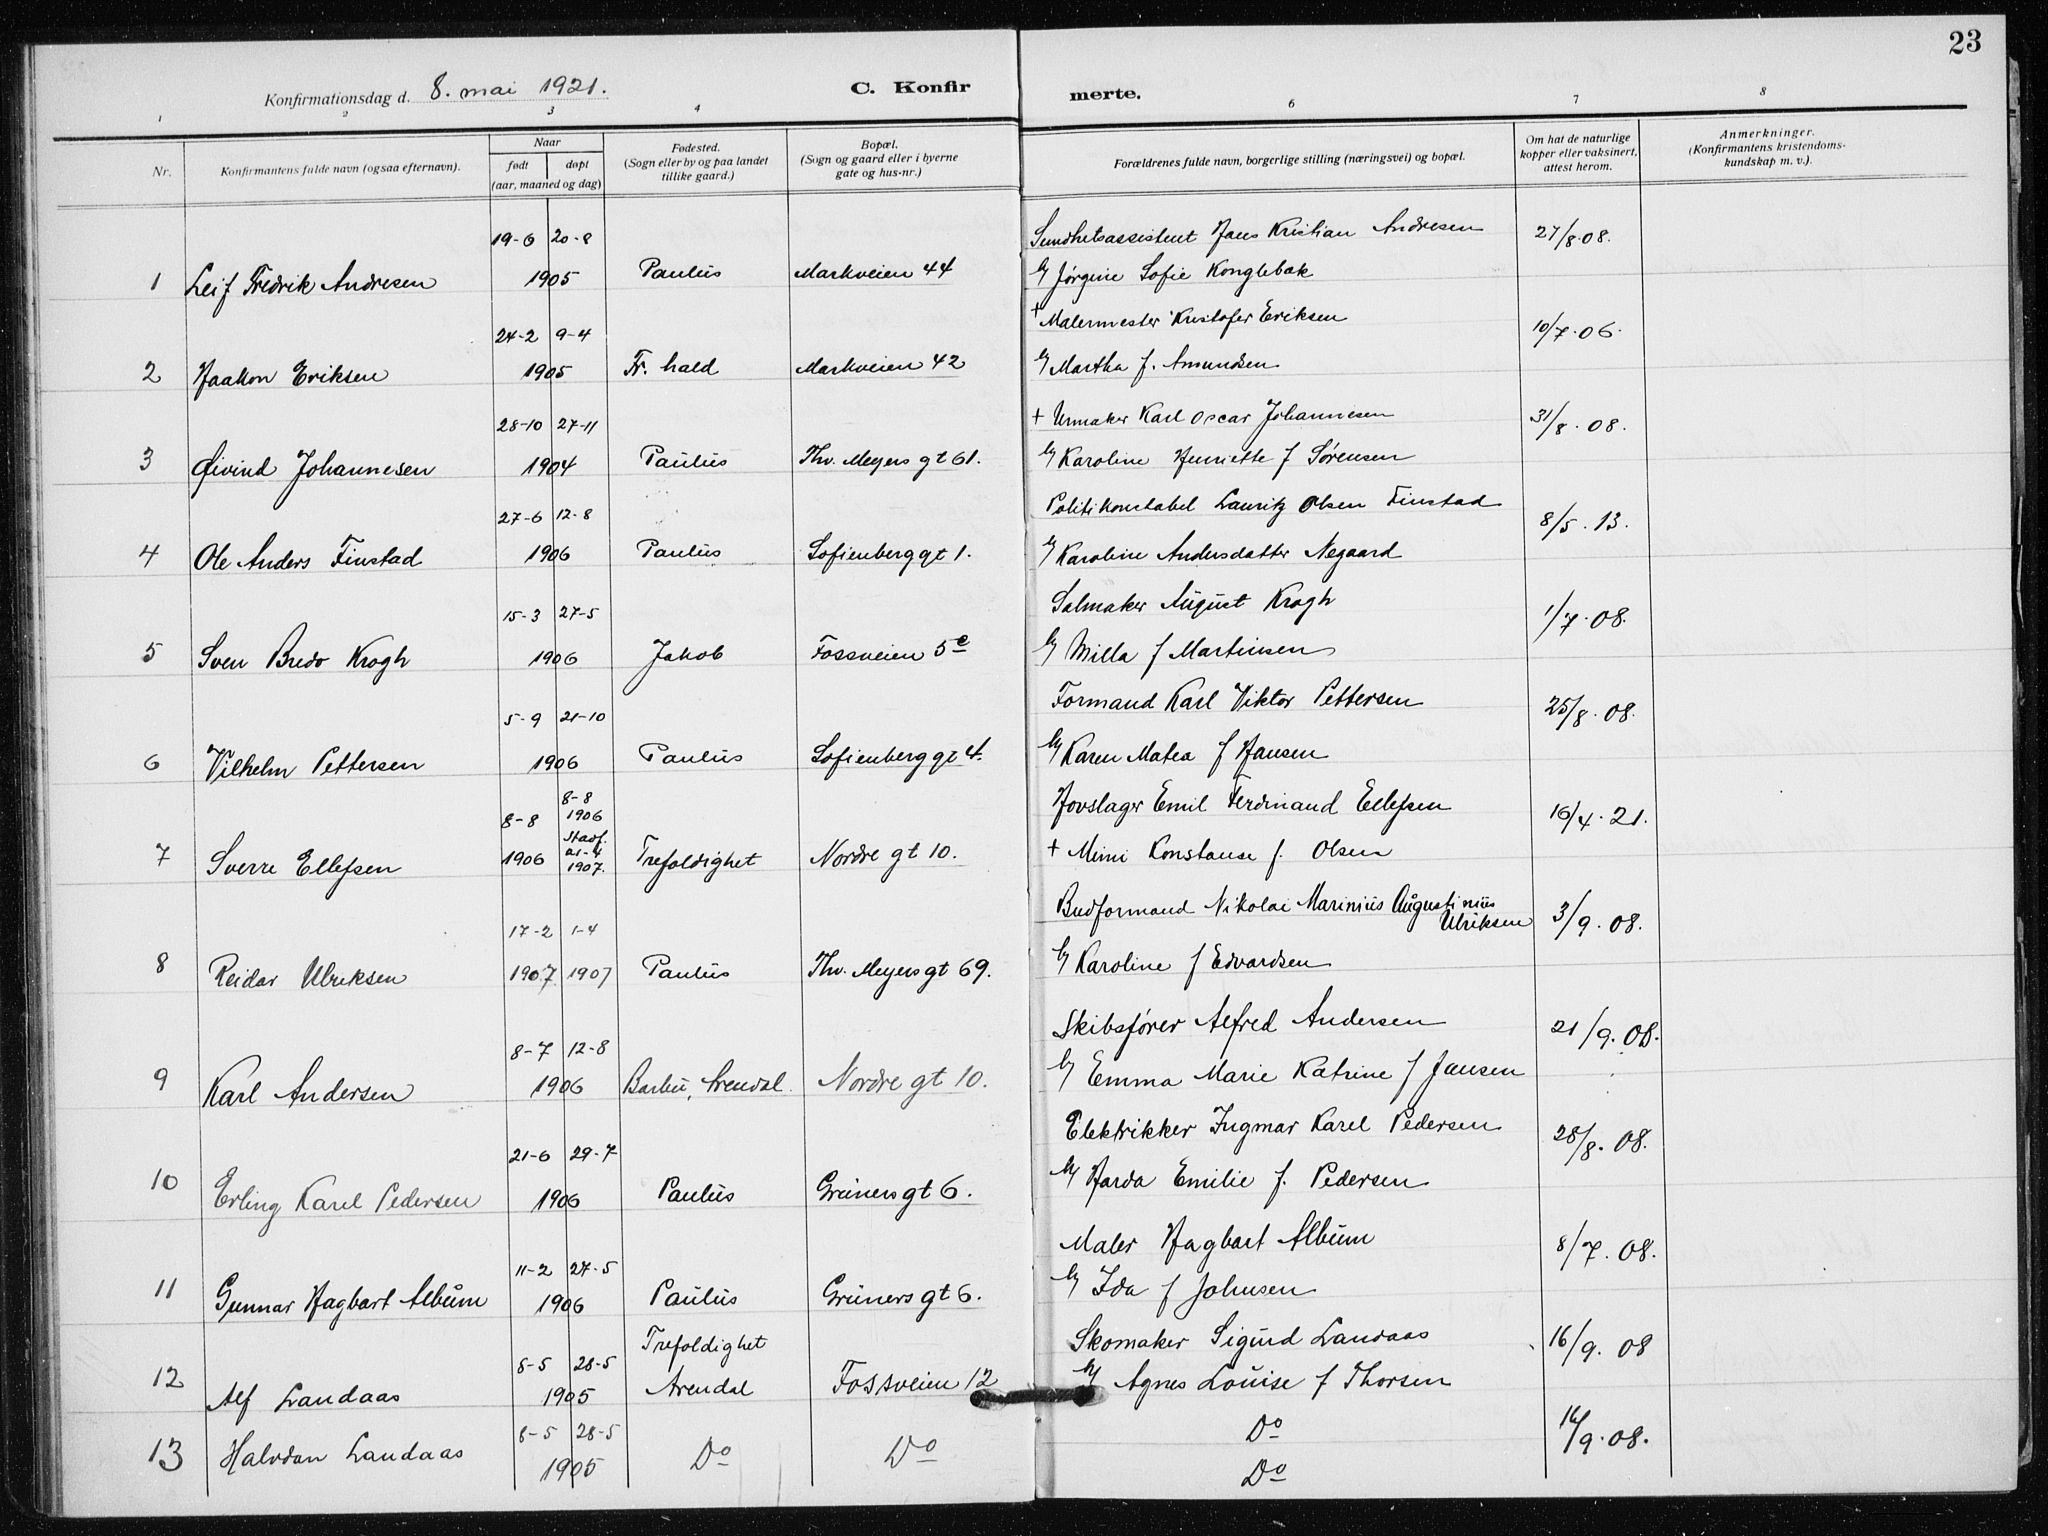 23
Konfirmationsdag d. 8. mai 1921.
C. Konfir
merte.
1 2 3 4 6 7 8
Nr.
Konfirmantens fulde navn (ogsaa efternavn).
Naar
født døpt
(aar, maaned og dag)
Fødested.
(Sogn eller by og paa landet
tillike gaard.)
Bopæl.
(Sogn og gaard eller i byerne
gate og hus-nr.)
Forældrenes fulde navn, borgerlige stilling (næringsvei) og bopæl.
Om hat de naturlige
kopper eller vaksinert,
attest herom.
Anmerkninger.
(Konfirmantens kristendoms-
kundskap m. v.).
19-6 20-8 Sundhetsassistent Hans Kristian Andresen 27/8.08.
1 Leif Fredrik Andresen 1905 Paulus Markveien 44 Jørgine Sofie Konglebæk
24-2 9-4 + Malermester Kristofer Eriksen 10/7.06.
2 Haakon Eriksen 1905 Fr. hald Markveien 42 Martha f. Amundsen
28-10 27-11 + Urmaker Karl Oscar Johannesen 31/8.08.
3 Øivind Johannesen 1904 Paulus Thv. Meyers gt 61. Karoline Henriette f Sørensen
27-6 12-8 Politikonstabel Lauritz Olsen Finstad 8/5.13.
4 Ole Anders Finstad 1906 Paulus Sofienberggt 1. Karoline Andersdatter Negaard
15-3 27-5 Salmaker August Krogh 1/7.08.
5 Sven Bredo Krogh 1906 Jakob Fossveien 5c Milla f Martinsen
5-9 21-10 Formand Karl Viktor Pettersen 25/8.08.
6 Vilhelm Pettersen 1906 Paulus Sofienberggt 4. Karen Matea f Hansen
8-8 8-8 1906 Hovslager Emil Ferdinand Ellefsen 16/4.21.
7 Sverre Ellefsen 1906 Stadf. 21-4 1907. Trefoldighet Nordre gt 10. + Mimi Konstanse f. Olsen
17-2 1-4 Budformand Nikolai Marinius Augustinius Ulriksen 3/9.08.
8 Reidar Ulriksen 1907 1907 Paulus Thv. Meyers gt 69. Karoline f Edvardsen
8-7 12-8 Skibsfører Alfred Andersen 21/9.08.
9 Karl Andersen 1906 Barbu, Arendal. Nordre gt 10. Emma Marie Katrine f Jansen
21-6 29-7 Elektrikker Ingmar Karel Pedersen 28/8.08.
10 Erling Karel Pedersen 1906 Paulus Grüners gt 6. Harda Emilie f. Pedersen
11-2 27-5 Maler Hagbart Album 8/7.08.
11 Gunnar Hagbart Album 1906 Paulus Grüners gt 6. Ida f Johnsen
8-5 28-5 Trefoldighet Skomaker Sigurd Landaas 16/9.08
12 Alf Landaas 1905 Arendal Fossveien 12 Agnes Louise f Thorsen
8-5 28-5 Do 16/9.08.
13 Halvdan Landaas 1905 Do Do Do